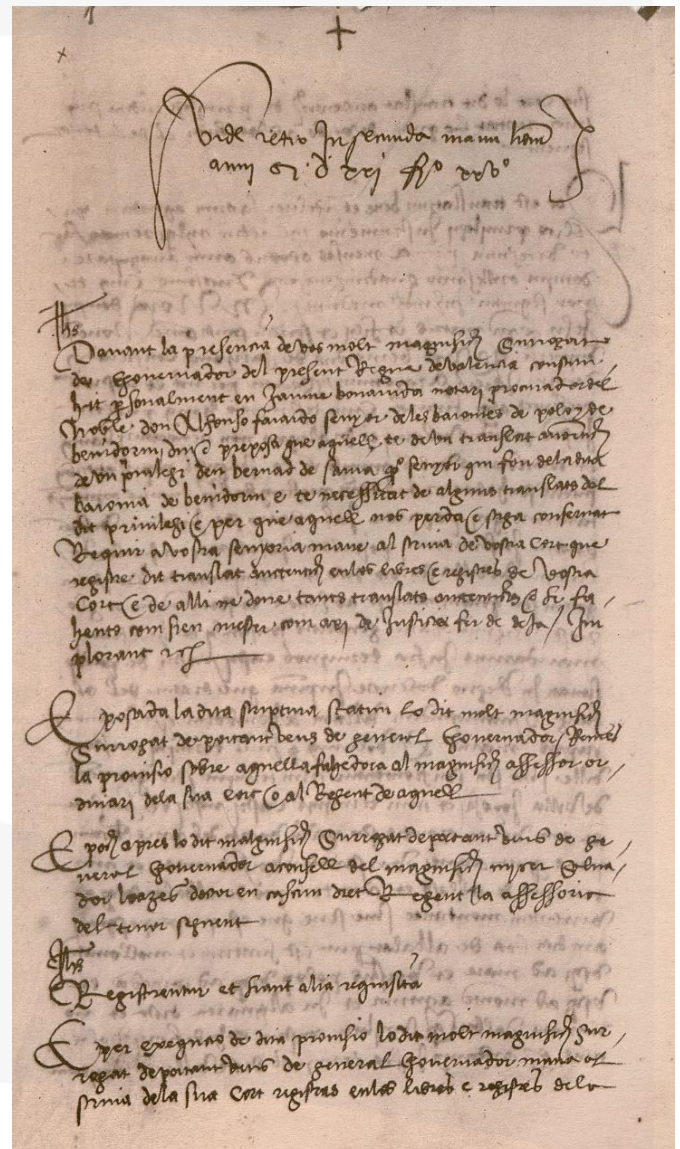 Vide retro In secunda manu
anni M D xxi fo xxvo
Jhs
Davant la presencia de vos molt magnifich Surrogat
de Governador del present Regne de Valencia constitu
hit personalment en Jaume bonavida notari procurador del
Noble don Alfonso faiardo senyor de les baronies de polop e de
benidorm dix e preposa que aquell te de un translat autentich
de un privilegi den bernad de sarria qo senyor qui fon dela dita
baronia de benidorm e te necessitat de alguns translats del
dit privilegi e per que aquell nos perda e stiga conservat
Requir a vostra senyoria mane al scriva de vostra Cort que
registre dit translat autentich en los libres e registres de Vostra
Cort e de alli ne done tants translats autentichs e fe fa
hents com sien mester com axi de Justicia fer se deja / Im
plorant etc
E posada la dita scriptura statim lo dit molt magnifich
Surrogat de portant veus de general Governador / Remes
la provisio sobre aquella fahedora al magnifich assessor or
dinari dela sua cort o al Regent de aquell
E poch apres lo dit magnifich Surrogat de portant veus de ge
neral Governador a consell del magnifich micer Salva
dor loazes doctor en cascun dret Regent la assessoria
del tenor seguent
Jhs
Registrentur et fiant alia requisita
E per execucio de dita provisio lo dit molt magnifich sur
rogat de portant veus de general Governador mana al
scriva dela sua Cort registras en los libres e registres dela